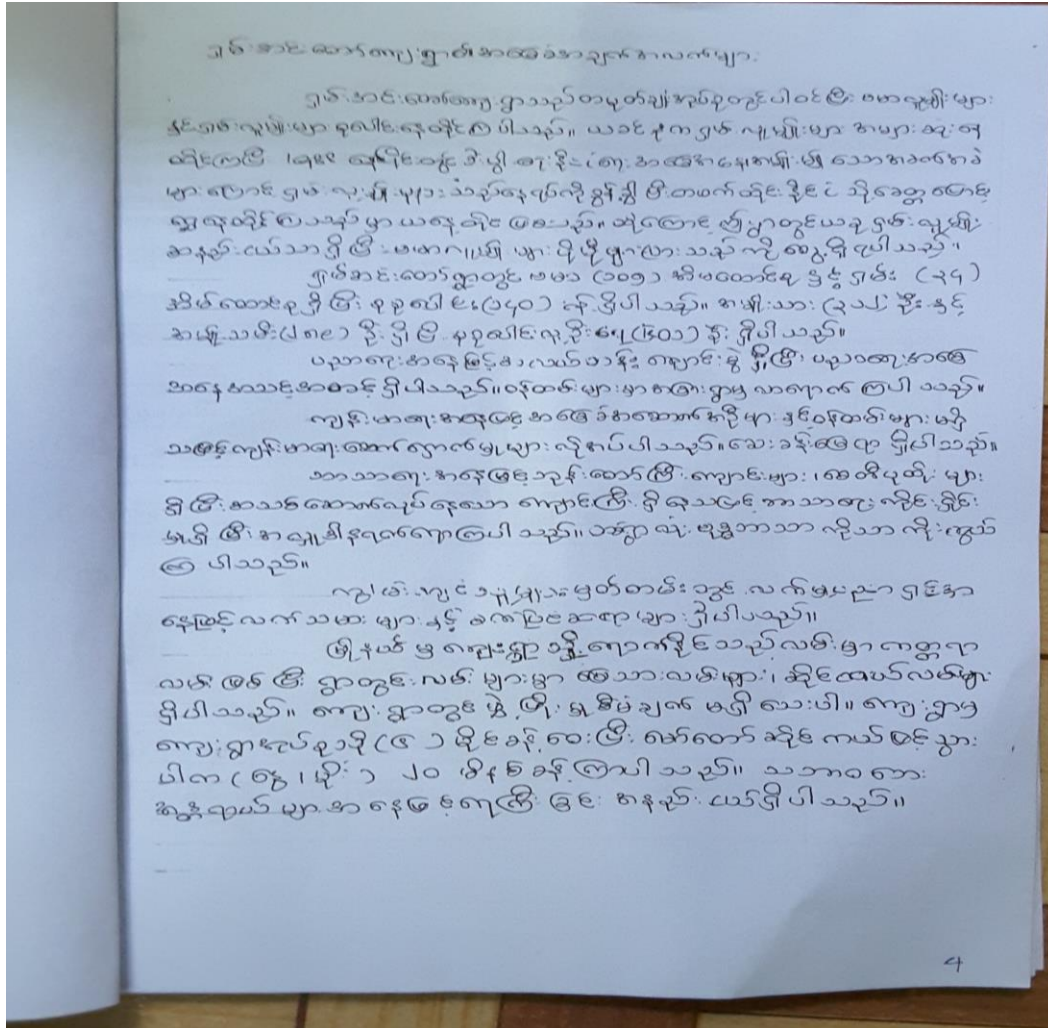 ရှမ်းအင်းတောင်ကျေးရွာ၏အခြေခံအချက်အလက်များ
ရှမ်းအင်းတောင်ကျေးရွာသည် အုပ်စုတွင်ပါဝင်ပြီး ဗမာလူမျိုးများ
နှင့်ရှမ်းလူမျိုးများ စုပေါင်းနေထိုင်ကြပါသည်။ ယခင်က ရှမ်းလူမျိုးများ အများဆုးနေ
ထိုင်ကြပြီး ၁၉၈၈ အခြေအနေအမျိုးမျိုးသောအခက်အခဲ
များကြောင့် ရှမ်းလူမျိုးများသည်နေရပ်ကိုစွန့်ခွာပြီး တဖက်ထိုင်းနိုင်ငံသို့
နေထိုင်ကြသည်မှာယနေ့ထိုင်ဖြစသည်။ ထို့ကြောင့် ဤရွာတွင်ယခုရှမ်းလူမျိုး
အနည်းငယ်သာရှိပြီး ဗမာလူမျိုးများ ပိုမိုများလာသည်ကို တွေ့ရှိရပါသည်။
ရှမ်းအင်းတောင်ရွာတွင် ဗမာ (၁၀၅) အိမ်ထောင်စု နှင့် ရှမ်း (၃၄)
အိမ်ထောင်စု ရှိပြီး စုစုပေါင်း(၁၄၀) ရှိပါသည်။ အမျိုးသား ဦး နှင့်
အမျိုးသမီး ဦး ရှိပြီး စုစုပေါင်းလူဦးရေ ဦး ရှိပါသည်။
ပညာရေးအနေဖြင့်အလယ်တန်းကျောင်းခွဲ ရှိပြီး ပညာရေးအခြေ
အနေအသင့်အတင့်ရှိပါသည်။ ဝန်ထမ်းများမှာအခြားရွာမှ လာရောက်ကြပါသည်။
ကျန်းမာရေးအနေဖြင့်အခြေခံအဆောက်အဦများနှင့်ဝန်ထမ်းများမရှိ
သဖြင့်ကျန်းမာရေးစောင့်ရှောက်မှုများလိုအပ်ပါသည်။ ဆေးခန်းမြေရာ ရှိပါသည်။
ဘာသာရေးအနေဖြင့်ဘုန်းတော်ကြီးကျောင်းများ၊စေတီပုထိုးများ
ရှိပြီးအသစ်ဆောက်လုပ်နေသောကျောင်းကြီးရှိ သဖြင့်ဘာသာရေးကိုင်းရှိုင်း
မှုရှိပြီး တစ်ရွာလုံးဗုဒ္ဓဘာသာကိုသာကိုးကွယ်
ကြပါသည်။
ကျွမ်းကျင်သူများမှတ်တမ်းတွင် လက်မှုပညာရှင်အ
နေဖြင့်လက်သမားများနှင့် စက်ပြင်ဆရာများရှိပါသည်။
မြို့နယ်မှကျေးရွာသို့ရောက်နိုင်သည်လမ်းမှာကတ္တရာ
လမ်းဖြစ်ပြီး ရွာတွင်းလမ်းများမှာမြေသားလမ်းများ၊ဆိုင်ကယ်လမ်းများ
ရှိပါသည်။ ကျေးရွာတွင်ဖွံ့ဖြိုးမှုစီမံချက်မရှိသေးပါ။ ကျေးရွာမှ
ကျေးရွာအုပ်စုသို့(၆) မိုင်ခန့်ဝေးပြီး မော်တော်ဆိုင်ကယ်ဖြင့်သွား
ပါက (နွေ၊မိုး) ၂၀ မိနစ်ခန့်ကြာပါသည်။ သဘာဝဘေး
အန္တရာယ်များအနေဖြင့်ရေကြီးခြင်းအနည်းငယ်ရှိပါသည်။
4